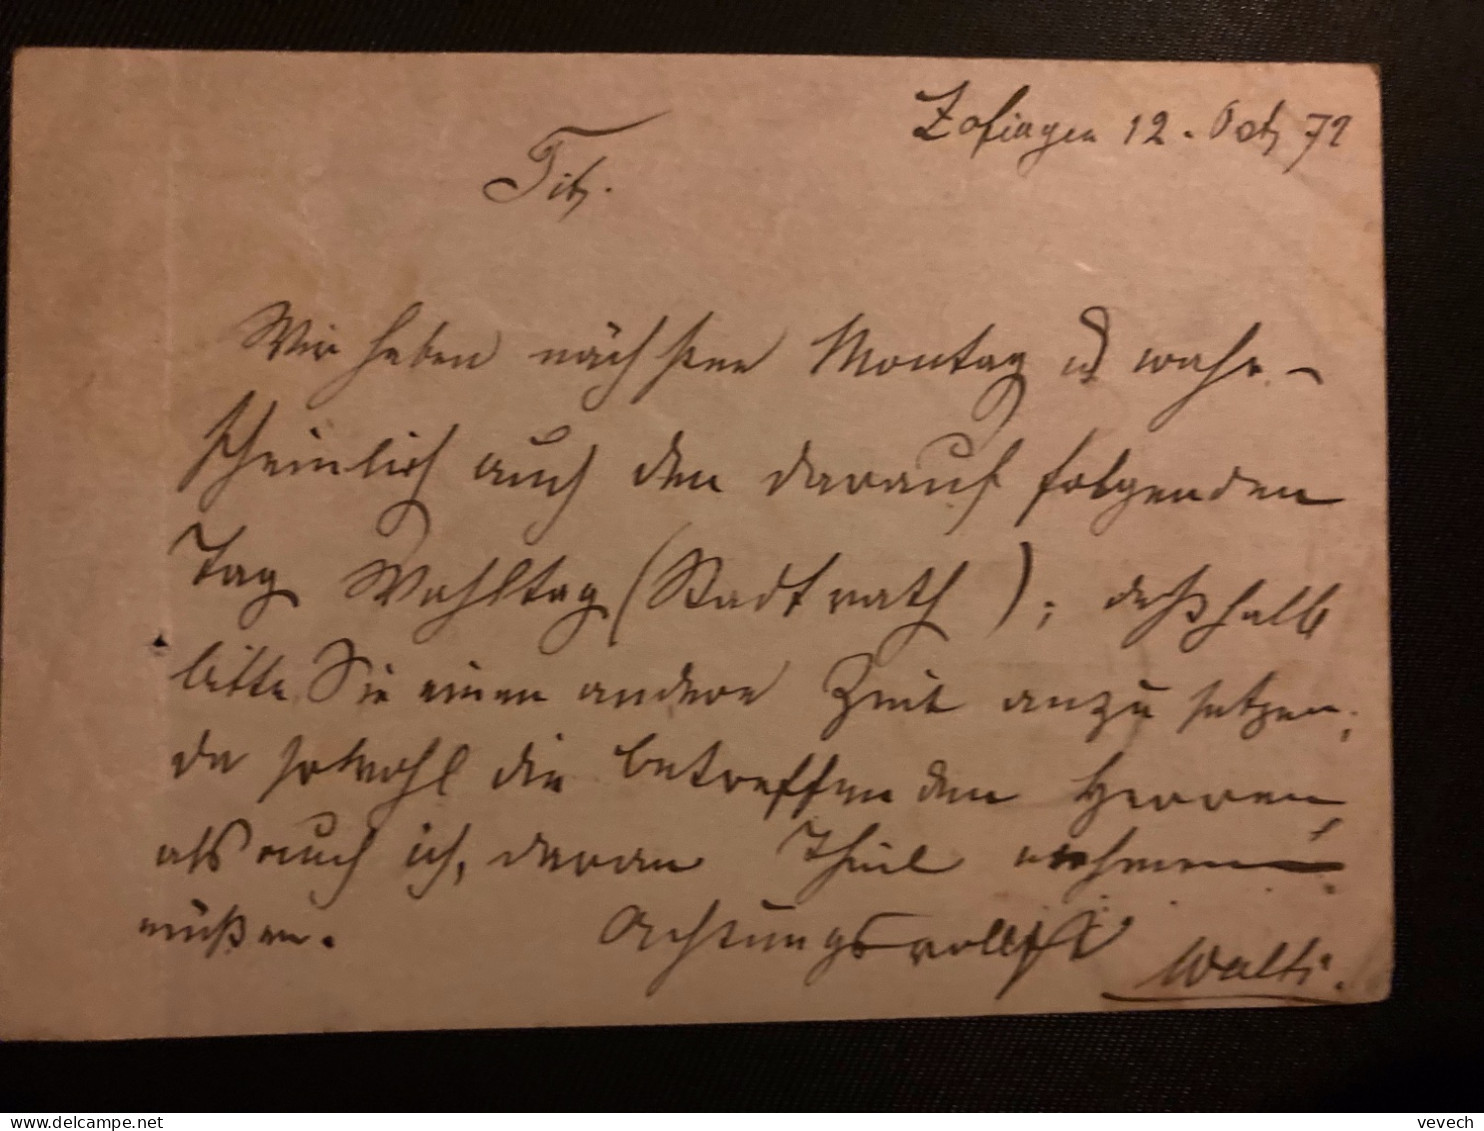 Zofingen 12. Octb 72
Titl.
Wir haben nächsten Montag u wahr-
scheinlich auch den darauf folgenden
Tag Wahltag (Stadtrath); deßhalb
bitte Sie einen andere Zeit anzusetzen,
da sowohl die betreffenden Herren,
als auch ich, daran Theil nehmen
müßen. Achtungsvollst
Walti.
vevech